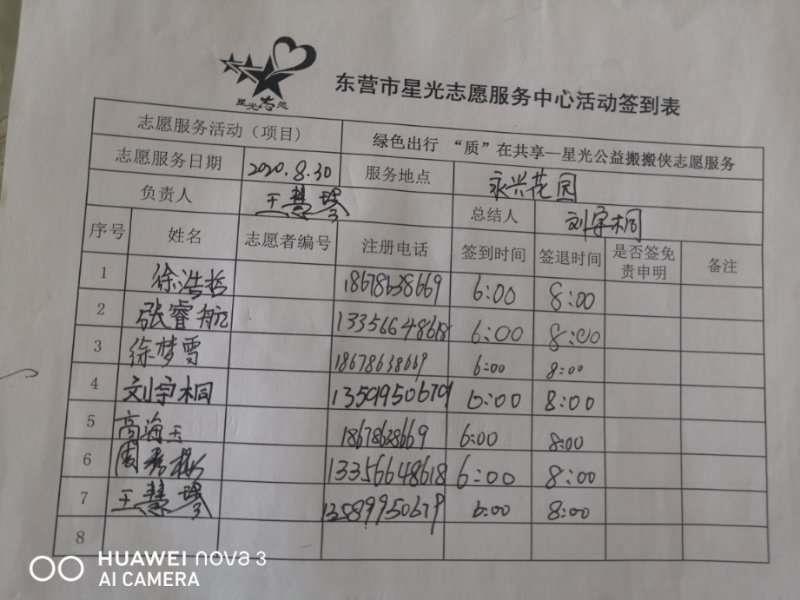 星光志愿
东营市星光志愿服务中心活动签到表
志愿服务活动（项目） 绿色出行 “质”在共享—星光公益搬搬侠志愿服务
志愿服务日期 2020.8.30 服务地点 永兴花园
负责人 王慧 总结人 刘宇桐
序号 姓名 志愿者编号 注册电话 签到时间 签退时间 是否签免责申明 备注
1 徐浩哲 18678638669 6:00 8:00
2 张睿航 13356648618 6:00 8:00
3 徐梦雪 18678638669 6:00 8:00
4 刘宇桐 6:00 8:00
5 高海玉 18678638669 6:00 8:00
6 周 13356648618 6:00 8:00
7 王慧 13589950679 6:00 8:00
8
HUAWEI nova 3
AI CAMERA